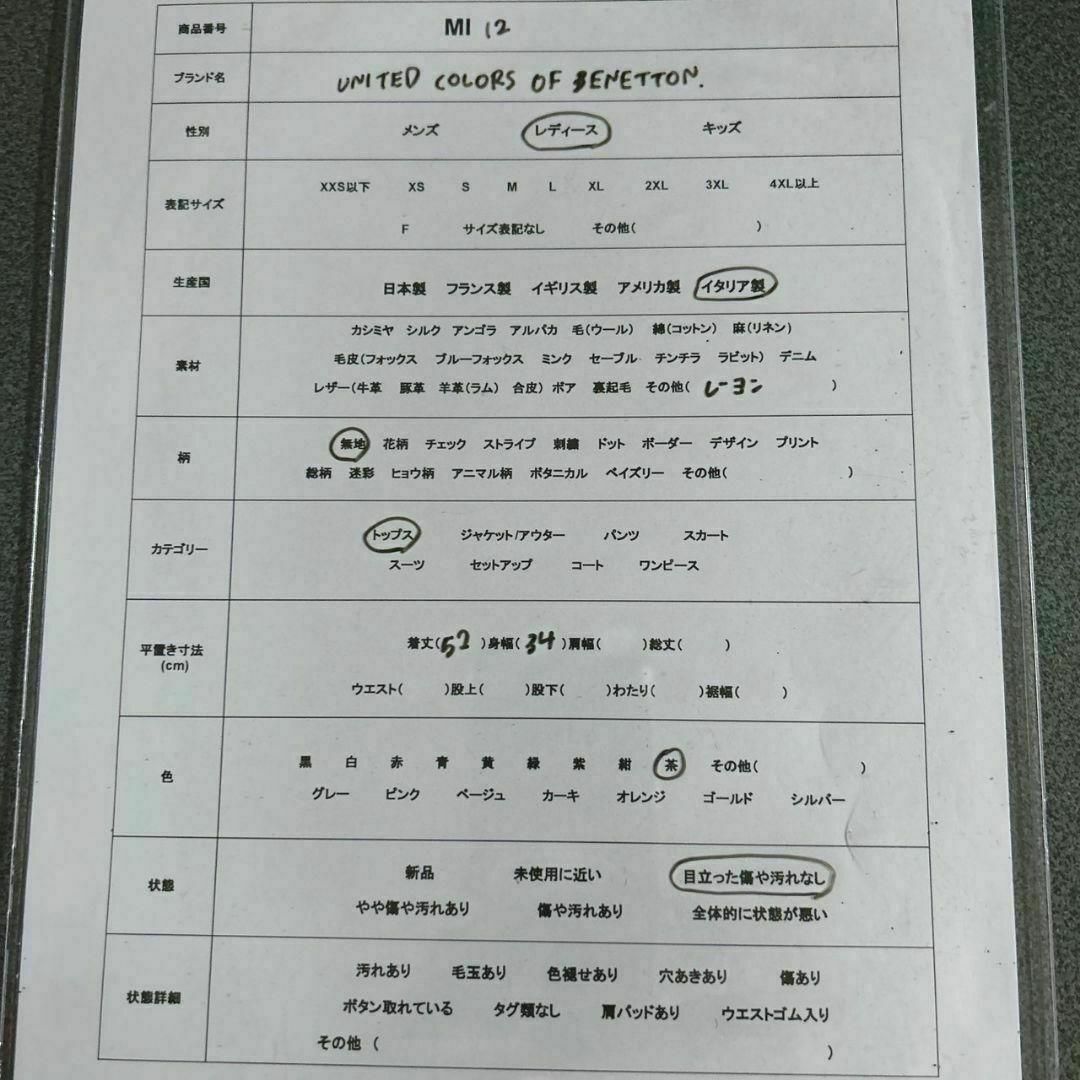 商品番号 MI 12
ブランド名 UNITED COLORS OF BENETTON.
性別 メンズ レディース キッズ
表記サイズ XXS以下 XS S M L XL 2XL 3XL 4XL以上
F サイズ表記なし その他( )
生産国 日本製 フランス製 イギリス製 アメリカ製 イタリア製
素材 カシミヤ シルク アンゴラ アルパカ 毛(ウール) 綿(コットン) 麻(リネン)
毛皮(フォックス ブルーフォックス ミンク セーブル チンチラ ラビット) デニム
レザー(牛革 豚革 羊革(ラム) 合皮) ボア 裏起毛 その他( レーヨン )
柄 無地 花柄 チェック ストライプ 刺繍 ドット ボーダー デザイン プリント
総柄 迷彩 ヒョウ柄 アニマル柄 ボタニカル ペイズリー その他( )
カテゴリー トップス ジャケット/アウター パンツ スカート
スーツ セットアップ コート ワンピース
平置き寸法 着丈( 52 )身幅( 34 )肩幅( )総丈( )
(cm)
ウエスト( )股上( )股下( )わたり( )裾幅( )
色 黒 白 赤 青 黄 緑 紫 紺 茶 その他( )
グレー ピンク ベージュ カーキ オレンジ ゴールド シルバー
状態 新品 未使用に近い 目立った傷や汚れなし
やや傷や汚れあり 傷や汚れあり 全体的に状態が悪い
状態詳細 汚れあり 毛玉あり 色褪せあり 穴あきあり 傷あり
ボタン取れている タグ類なし 肩パッドあり ウエストゴム入り
その他 ( )